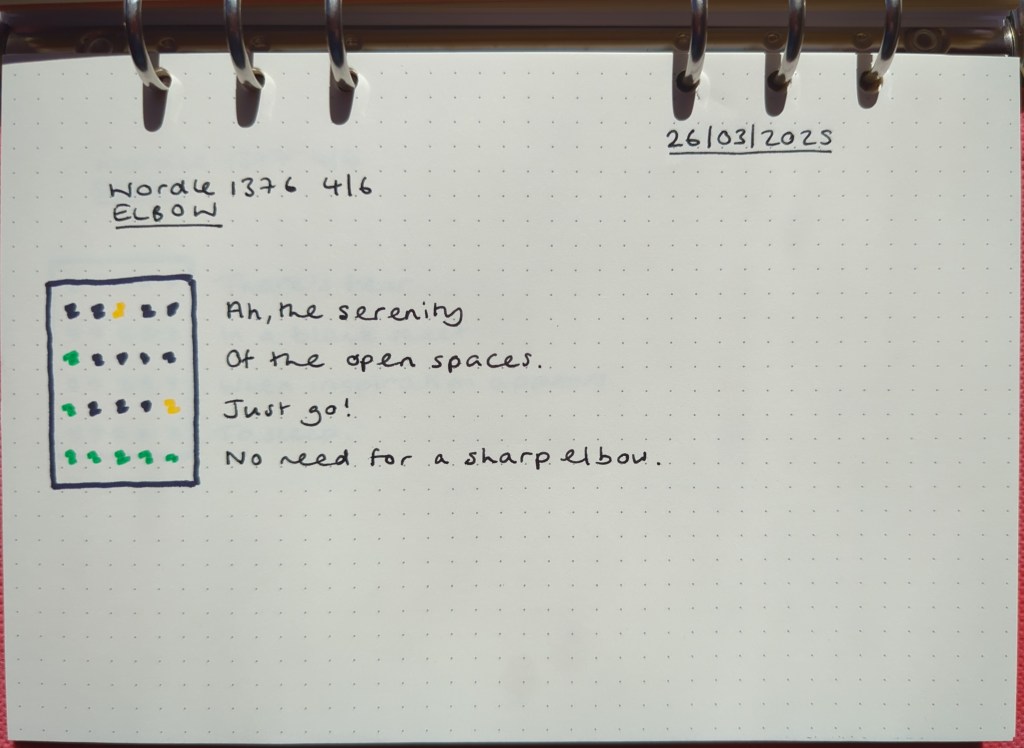 26/03/2025
Wordle 1376 4/6
ELBOW
Ah, the serenity
Of the open spaces.
Just go!
No need for a sharp elbow.